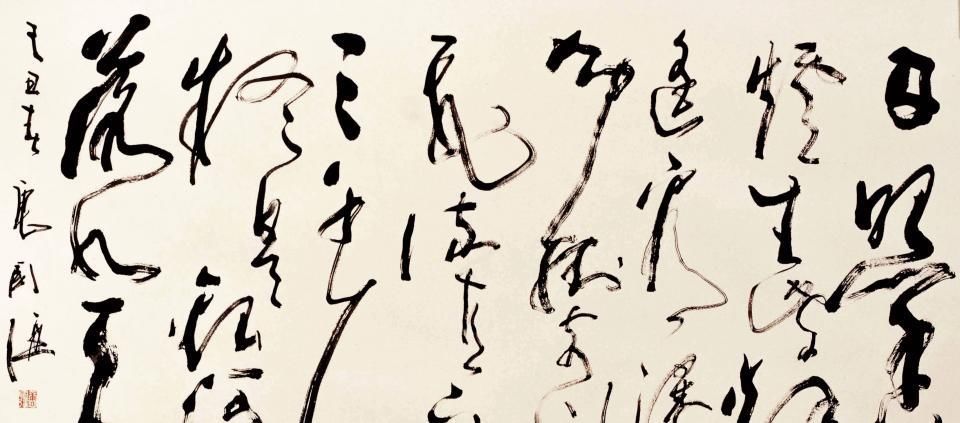 日照香
爐生紫煙
遙看瀑
布掛前川
飛流直下
三千尺
疑是銀河
落九天
辛丑春